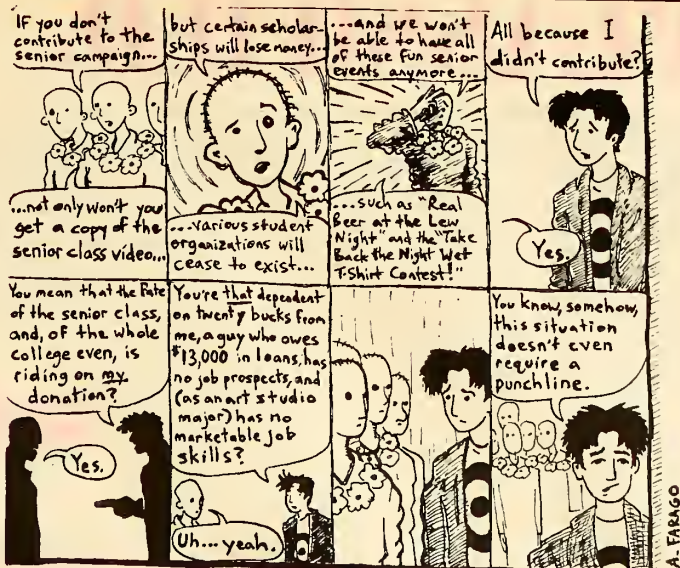 IF you don't
contribute to the
senior campaign...
...not only won't you
get a copy of the
senior class video...
but certain scholar-
ships will lose money...
...various student
organizations will
cease to exist...
...and we won't
be able to have all
of these fun senior
events anymore...
...such as "Real
Beer at the Lew
Night" and the "Take
Back the Night Wet
T-Shirt Contest!"
All because I
didn't contribute?
Yes.
You mean that the fate
of the senior class,
and, of the whole
college even, is
riding on my
donation?
Yes.
You're that dependent
on twenty bucks from
me, a guy who owes
$13,000 in loans, has
no job prospects, and
(as an art studio
major) has no
marketable job
skills?
Uh... yeah.
You know, somehow,
this situation
doesn't even
require a
punchline.
A. FARAGO